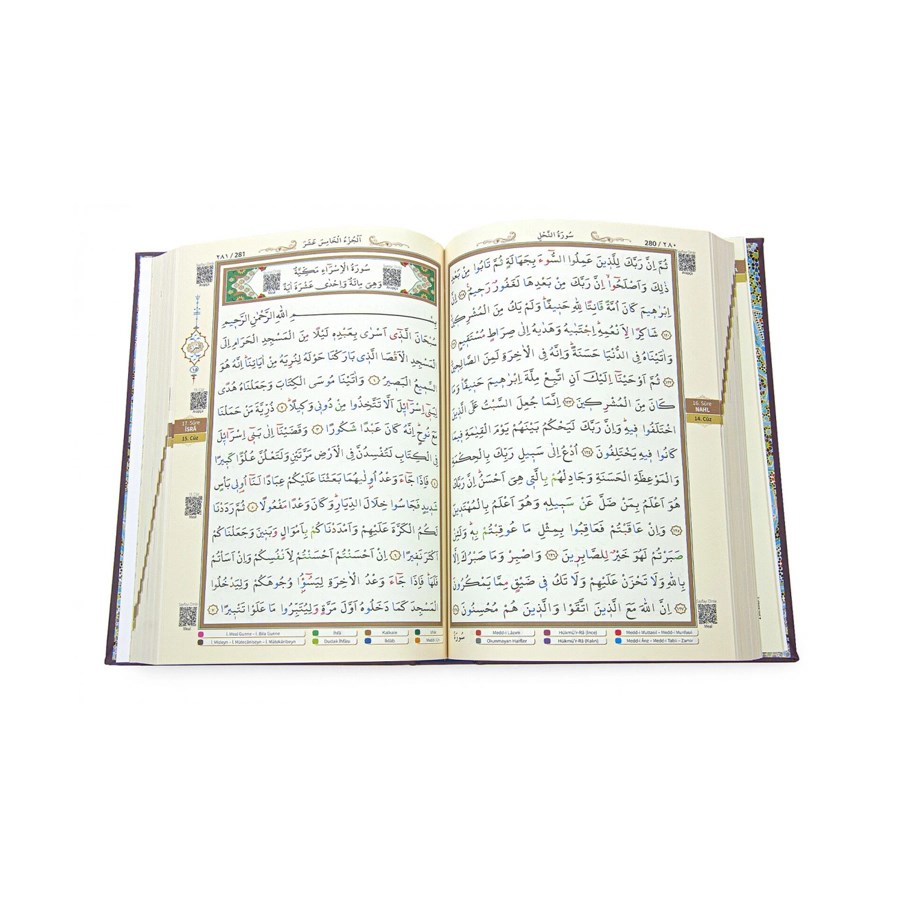 سُورَةُ النَّحْلِ
280 / ٢٨٠
ثُمَّ اِنَّ رَبَّكَ لِلَّذ۪ينَ عَمِلُوا السُّٓوءَ بِجَهَالَةٍ ثُمَّ تَابُوا مِنْ بَعْدِ
ذٰلِكَ وَاَصْلَحُٓوا اِنَّ رَبَّكَ مِنْ بَعْدِهَا لَغَفُورٌ رَح۪يمٌ ﴿١١٩﴾ اِنَّ
اِبْرٰه۪يمَ كَانَ اُمَّةً قَانِتًا لِلّٰهِ حَن۪يفًا وَلَمْ يَكُ مِنَ الْمُشْرِك۪ينَ
﴿١٢٠﴾ شَاكِرًا لِاَنْعُمِهِ اِجْتَبٰيهُ وَهَدٰيهُ اِلٰى صِرَاطٍ مُسْتَق۪يمٍ
﴿١٢١﴾ وَاٰتَيْنَاهُ فِي الدُّنْيَا حَسَنَةً وَاِنَّهُ فِي الْاٰخِرَةِ لَمِنَ الصَّالِح۪ينَ
﴿١٢٢﴾ ثُمَّ اَوْحَيْنَٓا اِلَيْكَ اَنِ اتَّبِعْ مِلَّةَ اِبْرٰه۪يمَ حَن۪يفًا وَمَا
كَانَ مِنَ الْمُشْرِك۪ينَ ﴿١٢٣﴾ اِنَّمَا جُعِلَ السَّبْتُ عَلَى الَّذ۪ينَ
اخْتَلَفُوا ف۪يهِ وَاِنَّ رَبَّكَ لَيَحْكُمُ بَيْنَهُمْ يَوْمَ الْقِيٰمَةِ ف۪يمَا
كَانُوا ف۪يهِ يَخْتَلِفُونَ ﴿١٢٤﴾ اُدْعُ اِلٰى سَب۪يلِ رَبِّكَ بِالْحِكْمَةِ
وَالْمَوْعِظَةِ الْحَسَنَةِ وَجَادِلْهُمْ بِالَّت۪ي هِيَ اَحْسَنُ اِنَّ رَبَّكَ
هُوَ اَعْلَمُ بِمَنْ ضَلَّ عَنْ سَب۪يلِه۪ وَهُوَ اَعْلَمُ بِالْمُهْتَد۪ينَ
﴿١٢٥﴾ وَاِنْ عَاقَبْتُمْ فَعَاقِبُوا بِمِثْلِ مَا عُوقِبْتُمْ بِه۪ وَلَئِنْ
صَبَرْتُمْ لَهُوَ خَيْرٌ لِلصَّابِر۪ينَ ﴿١٢٦﴾ وَاصْبِرْ وَمَا صَبْرُكَ اِلَّا
بِاللّٰهِ وَلَا تَحْزَنْ عَلَيْهِمْ وَلَا تَكُ ف۪ي ضَيْقٍ مِمَّا يَمْكُرُونَ
﴿١٢٧﴾ اِنَّ اللّٰهَ مَعَ الَّذ۪ينَ اتَّقَوْا وَالَّذ۪ينَ هُمْ مُحْسِنُونَ ﴿١٢٨﴾
16. Sûre
NAHL
14. Cüz
Medd-i Lâzım
Hükmü'r-Râ (İnce)
Medd-i Muttasıl - Medd-i Munfasıl
Okunmayan Harfler
Hükmü'r-Râ (Kalın)
Medd-i Ârız - Medd-i Tabii - Zamir
اَلْجُزْءُ الْخَامِسَ عَشَرَ
٢٨١ / 281
سُورَةُ الْاِسْرَٓاءِ مَكِّيَّةٌ
وَهِيَ مِائَةٌ وَاِحْدٰى عَشْرَةَ اٰيَةً
بِسْمِ اللّٰهِ الرَّحْمٰنِ الرَّح۪يمِ
سُبْحَانَ الَّذ۪ٓي اَسْرٰى بِعَبْدِه۪ لَيْلًا مِنَ الْمَسْجِدِ الْحَرَامِ اِلَى
الْمَسْجِدِ الْاَقْصَا الَّذ۪ي بَارَكْنَا حَوْلَهُ لِنُرِيَهُ مِنْ اٰيَاتِنَا اِنَّهُ هُوَ
السَّم۪يعُ الْبَص۪يرُ ﴿١﴾ وَاٰتَيْنَا مُوسَى الْكِتَابَ وَجَعَلْنَاهُ هُدًى
لِبَن۪ٓي اِسْرَٓائ۪لَ اَلَّا تَتَّخِذُوا مِنْ دُون۪ي وَك۪يلًا ﴿٢﴾ ذُرِّيَّةَ مَنْ حَمَلْنَا
مَعَ نُوحٍ اِنَّهُ كَانَ عَبْدًا شَكُورًا ﴿٣﴾ وَقَضَيْنَٓا اِلٰى بَن۪ٓي اِسْرَٓائ۪لَ
فِي الْكِتَابِ لَتُفْسِدُنَّ فِي الْاَرْضِ مَرَّتَيْنِ وَلَتَعْلُنَّ عُلُوًّا كَب۪يرًا
﴿٤﴾ فَاِذَا جَٓاءَ وَعْدُ اُو۫لٰيهُمَا بَعَثْنَا عَلَيْكُمْ عِبَادًا لَنَٓا اُو۬ل۪ي بَأْسٍ
شَد۪يدٍ فَجَاسُوا خِلَالَ الدِّيَارِ وَكَانَ وَعْدًا مَفْعُولًا ﴿٥﴾ ثُمَّ رَدَدْنَا
لَكُمُ الْكَرَّةَ عَلَيْهِمْ وَاَمْدَدْنَاكُمْ بِاَمْوَالٍ وَبَن۪ينَ وَجَعَلْنَاكُمْ
اَكْثَرَ نَف۪يرًا ﴿٦﴾ اِنْ اَحْسَنْتُمْ اَحْسَنْتُمْ لِاَنْفُسِكُمْ وَاِنْ اَسَأْتُمْ
فَلَهَا فَاِذَا جَٓاءَ وَعْدُ الْاٰخِرَةِ لِيَسُٓوؤُ۫ا وُجُوهَكُمْ وَلِيَدْخُلُوا
الْمَسْجِدَ كَمَا دَخَلُوهُ اَوَّلَ مَرَّةٍ وَلِيُتَبِّرُوا مَا عَلَوْا تَتْب۪يرًا ﴿٧﴾
17. Sûre
İSRÂ
15. Cüz
İhfâ
Kalkale
İklâb